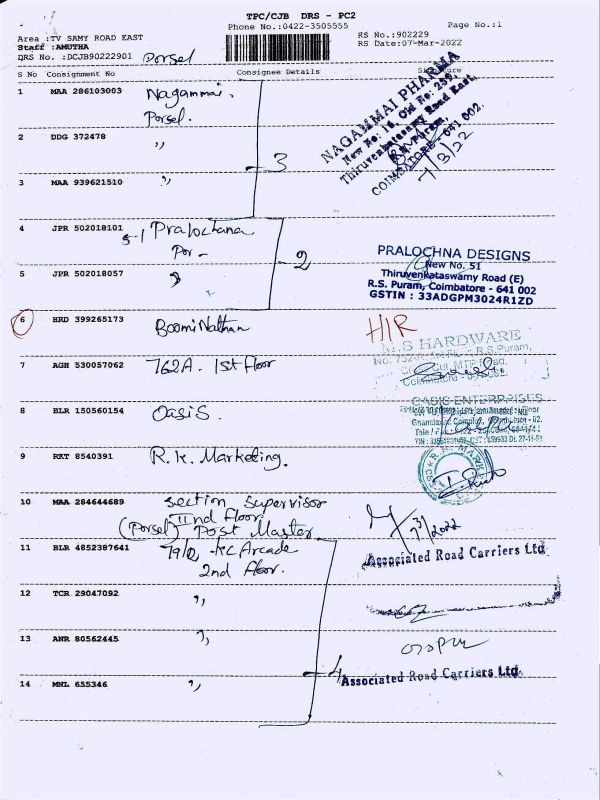 TPC/CJB DRS - PC2
Phone No.:0422-3505555
Page No.:1
Area :TV SAMY ROAD EAST
KS No.:902229
Staff :AMUTHA
RS Date:07-Mar-2022
DRS No. :DCJB90222901
Porsel
S No Consignment No Consignee Details Signature
1 MAA 286103003 Nagammai.
Porsel.
NAGAMMAI PHARMA
New No: 10, Old No: 239,
Thiruvenkatasamy Road East,
R.S. Puram,
COIMBATORE - 641 002.
7/3/22
2 DDG 372478 ,,
3
3 MAA 939621510 ,,
4 JPR 502018101 Pralochana
5-1 Por -
2
5 JPR 502018057 ,,
PRALOCHNA DESIGNS
New No. 51
Thiruvenkataswamy Road (E)
R.S. Puram, Coimbatore - 641 002
GSTIN : 33ADGPM3024R1ZD
6 HRD 399265173 Boominathan H/R
7 AGH 530057062 762A. 1st floor
S HARDWARE
R.S.Puram,
8 BLR 150560154 Oasis.
OASIS ENTERPRISES
9 RKT 8540391 R.K. Marketing.
10 MAA 284644689 Section Supervisor
IInd Floor
(Porsel) Post Master
7/3/2022
11 BLR 4852387641 79/2, KC Arcade
2nd floor.
Associated Road Carriers Ltd
12 TCR 29047092 ,,
13 ANR 80562445 ,,
4
14 MNL 655346 ,,
Associated Road Carriers Ltd